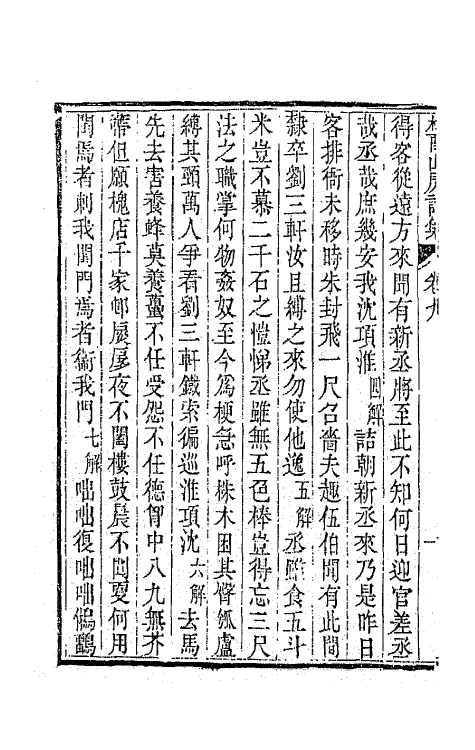 得客從遠方來聞有新丞將至此不知何日迎官差丞
哉丞哉庶幾安我沈項淮四解詰朝新丞來乃是昨日
客排衙未移時朱封飛一尺召嗇夫趣伍伯聞有此間
隸卒劉三軒汝且縛之來勿使他逸五解丞雖食五斗
米豈不慕二千石之愷悌丞雖無五色棒豈得忘三尺
法之職掌何物姦奴至今爲梗急呼株木困其臀瓠盧
縛其頸萬人爭看劉三軒鐵索徧巡淮項沈六解去馬
先去害養蜂莫養蠆不任受怨不任德胷中八九無芥
蔕但願槐店千家邨扊扅夜不闔樓鼓晨不聞耍何用
閏焉者刺我閨門焉者衞我門七解咄咄復咄咄鵂鶹